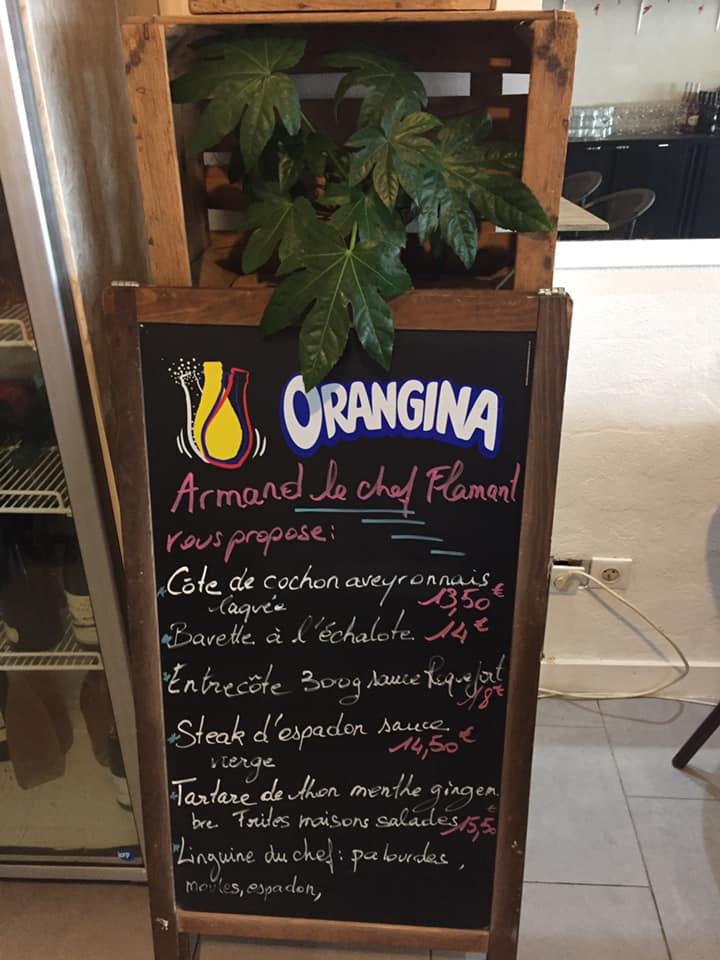 ORANGINA
Armand le chef Flamant
vous propose:
Côte de cochon aveyronnais
laquée 13,50€
Bavette à l'échalote 14€
Entrecôte 300g sauce Roquefort
18€
Steak d'espadon sauce
vierge 14,50€
Tartare de thon menthe gingem
bre Frites maisons salades 15,50€
Linguine du chef: palourdes,
moules, espadon,